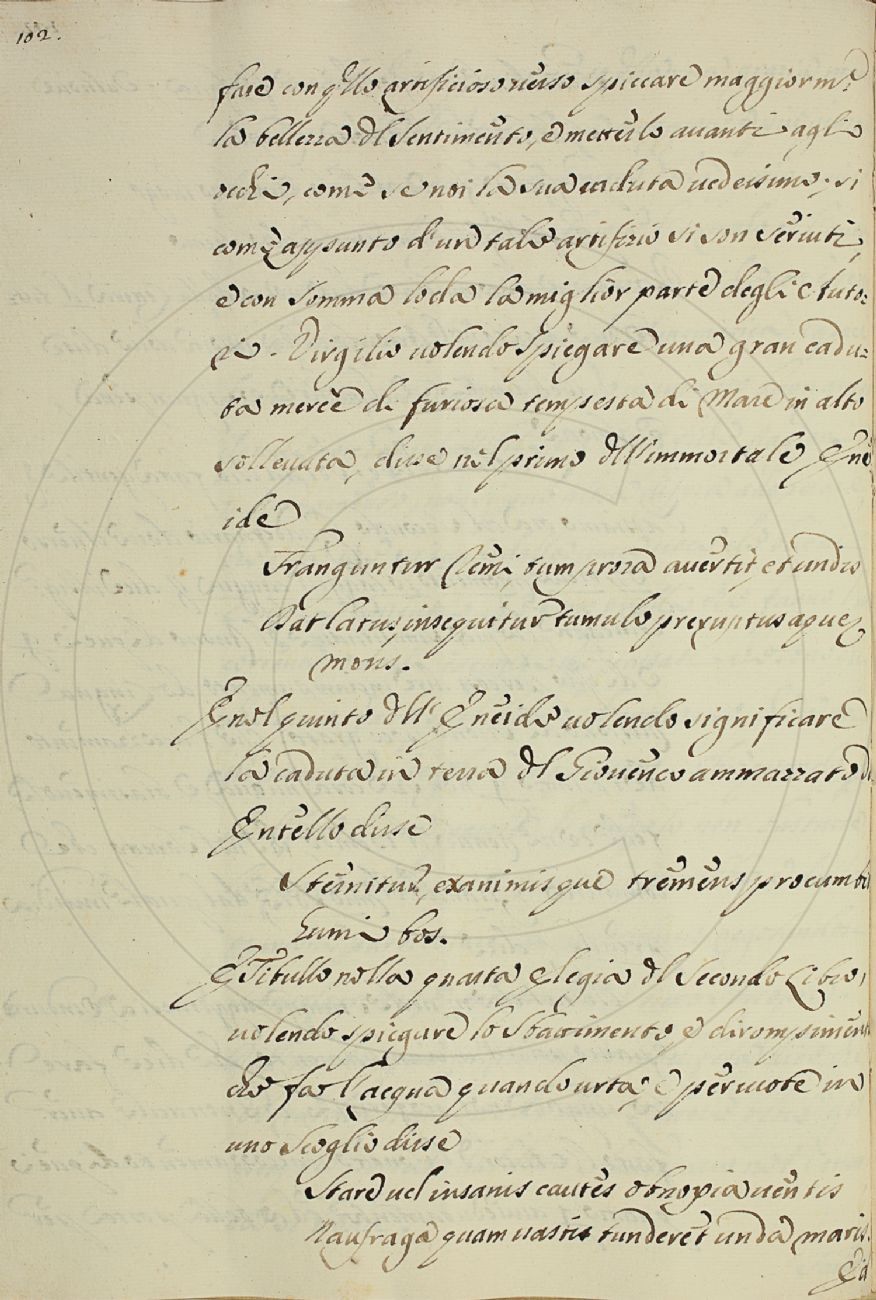 102.
fare con q̃llo artificioso uerso spiccare maggiorm.e
la bellezza dl Sentimento, e metterlo auanti agli
ochi, come se noi la sua caduta uedessimo; si
come appunto d'un tale artifizio si son seruiti,
e con Somma loda la miglior parte degli Auto:
ri. Virgilio uolendo spiegare una gran cadu:
ta mercè di furiosa tempesta di Mare in alto
solleuata, disse nel primo dll'immortale Ene
ide
Franguntur Remi, tum prora auertit, et undis
Dat latus, insequitur cumulo preruptus aquę
mons.
E nel quinto dll' Eneide uolendo significare
la caduta in terra dl Giouenco ammazzato d
Entello disse
Sternitur, exanimisque tremens procumbi
humi bos.
E Tibullo nella quarta elegia dl Secondo Libro,
uolendo spiegare lo Sbattimento e dirompimen
che fa l'acqua quando urta, e percuote in
uno Scoglio disse
Stare uel insanis cautes obnoxia uentis
Naufraga quam uasti tunderet unda maris.